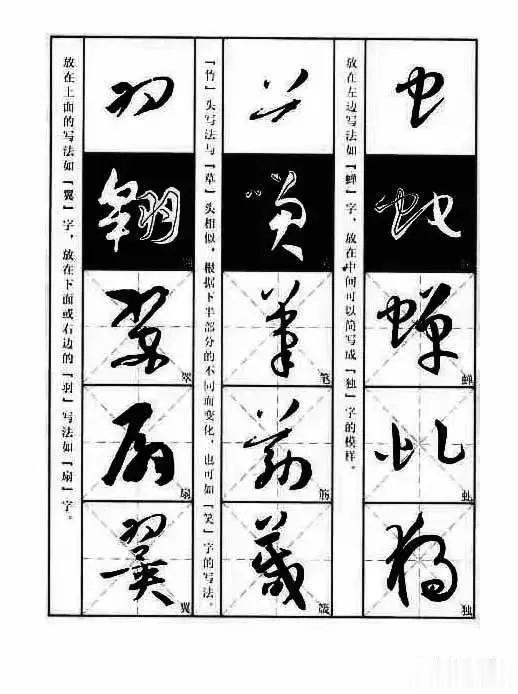 虫
蝉
虬
独
放在左边写法如「蝉」字，放在中间可以简写成「独」字的模样。
笑
笔
筋
箴
「竹」头写法与「草」头相似，根据下半部分的不同而变化，也可如「笑」字的写法。
羽
翠
扇
翼
放在上面的写法如「翼」字，放在下面或右边的「羽」写法如「扇」字。